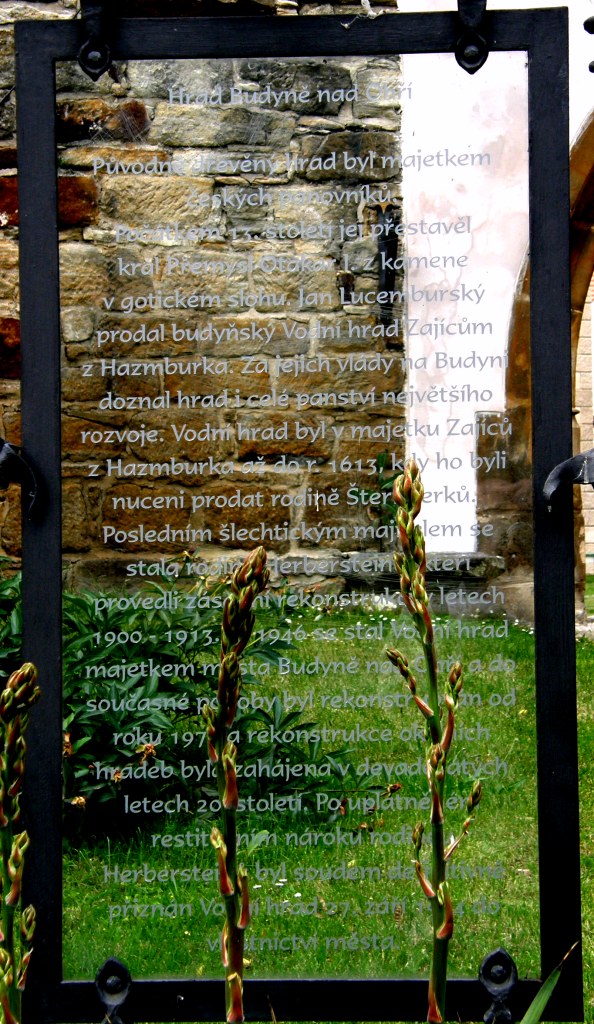 Hrad Budyně nad Ohří
Původně dřevěný hrad byl majetkem
českých panovníků.
Počátkem 13. století jej přestavěl
král Přemysl Otakar I. z kamene
v gotickém slohu. Jan Lucemburský
prodal budyňský Vodní hrad Zajícům
z Hazmburka. Za jejich vlády na Budyni
doznal hrad i celé panství největšího
rozvoje. Vodní hrad byl v majetku Zajíců
z Hazmburka až do r. 1613, kdy ho byli
nuceni prodat rodině Šternberků.
Posledním šlechtickým majitelem se
stala rodina Herbersteinů, kteří
provedli zásadní rekonstrukci v letech
1900 - 1913. 1946 se stal Vodní hrad
majetkem města Budyně nad Ohří a do
současné podoby byl rekonstruován od
roku a rekonstrukce okolních
hradeb byla zahájena v devadesátých
letech 20. století. Po uplatnění
restitučním nároku rodiny
Herbersteinů byl soudem definitivně
přiznán Vodní hrad 27. září do
vlastnictví města.